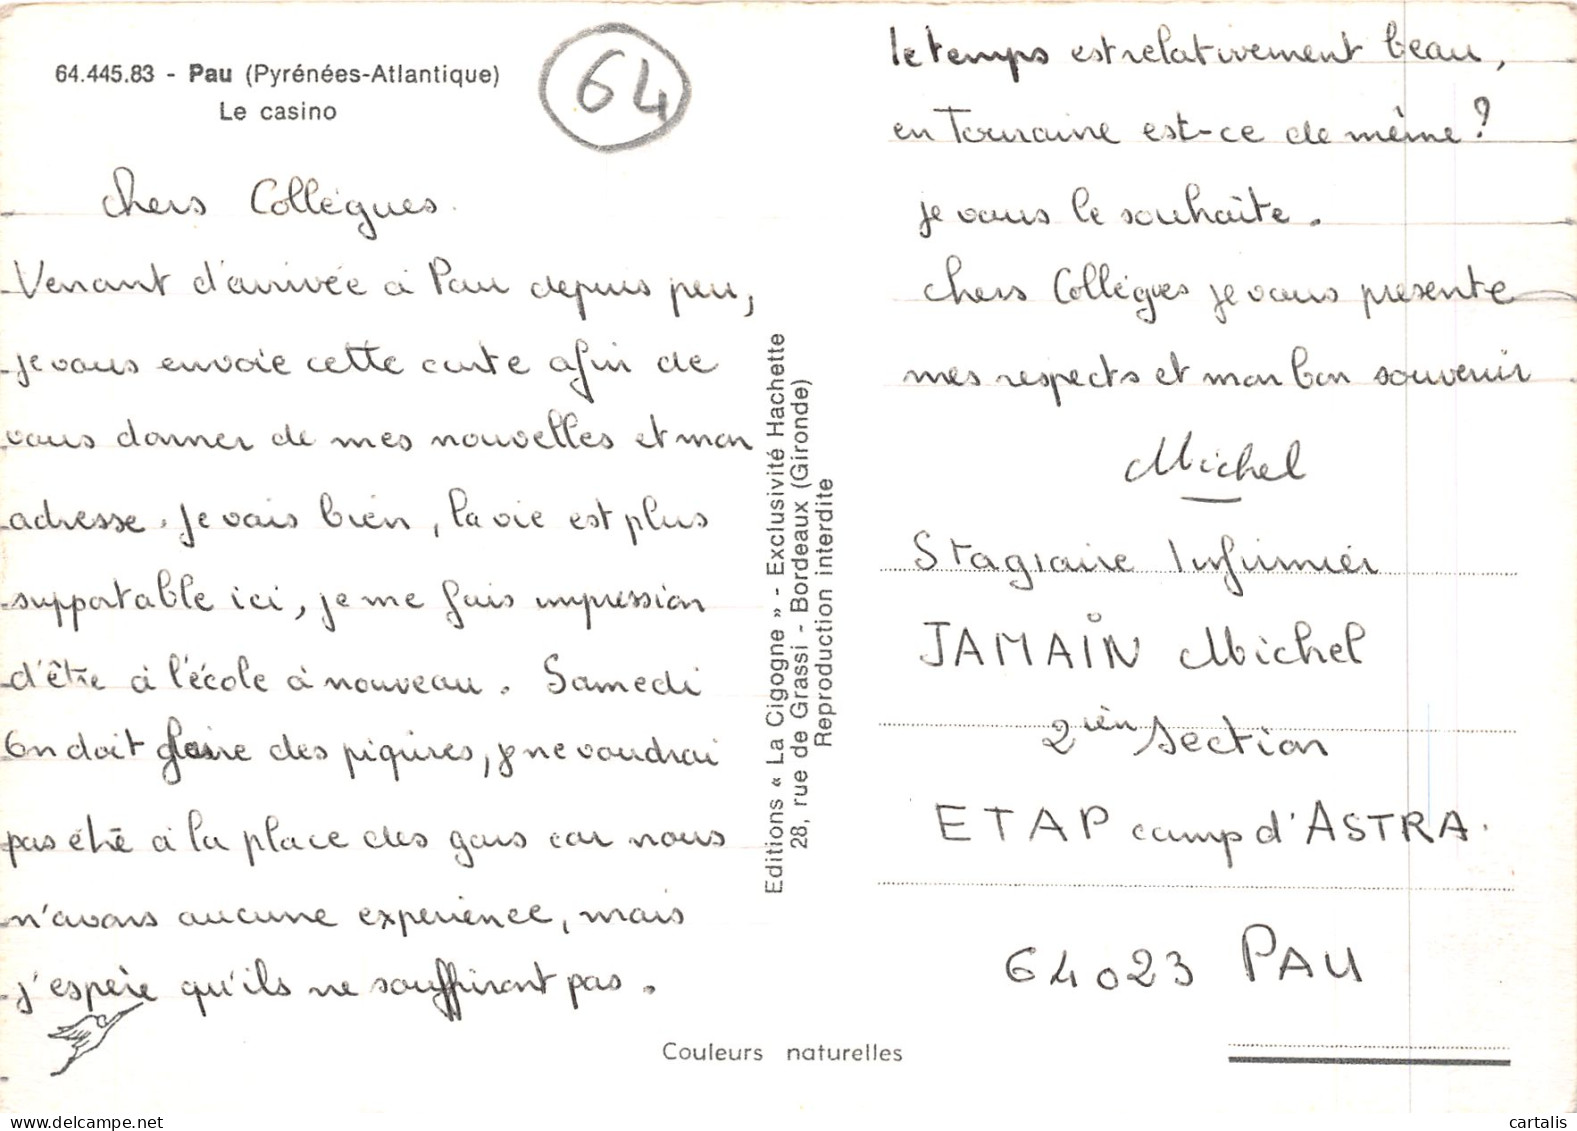 64.445.83 - Pau (Pyrénées-Atlantique)
Le casino
64
Chers Collègues.
Venant d'arrivée à Pau depuis peu,
je vous envoie cette carte afin de
vous donner de mes nouvelles et mon
adresse. Je vais bien, la vie est plus
supportable ici, je me fais impression
d'être à l'école à nouveau. Samedi
On doit faire des piqures, je ne voudrai
pas étré à la place des gars car nous
n'avons aucune experience, mais
j'espère qu'ils ne souffriront pas.
Editions « La Cigogne » - Exclusivité Hachette
28, rue de Grassi - Bordeaux (Gironde)
Reproduction interdite
le temps est relativement beau,
en Touraine est-ce de même?
je vous le souhaite.
Chers Collègues je vous presente
mes respects et mon bon souvenir
Michel
Stagiaire Infirmier
JAMAIN Michel
2ièm Section
ETAP camp d'ASTRA.
64023 PAU
Couleurs naturelles
cartalis